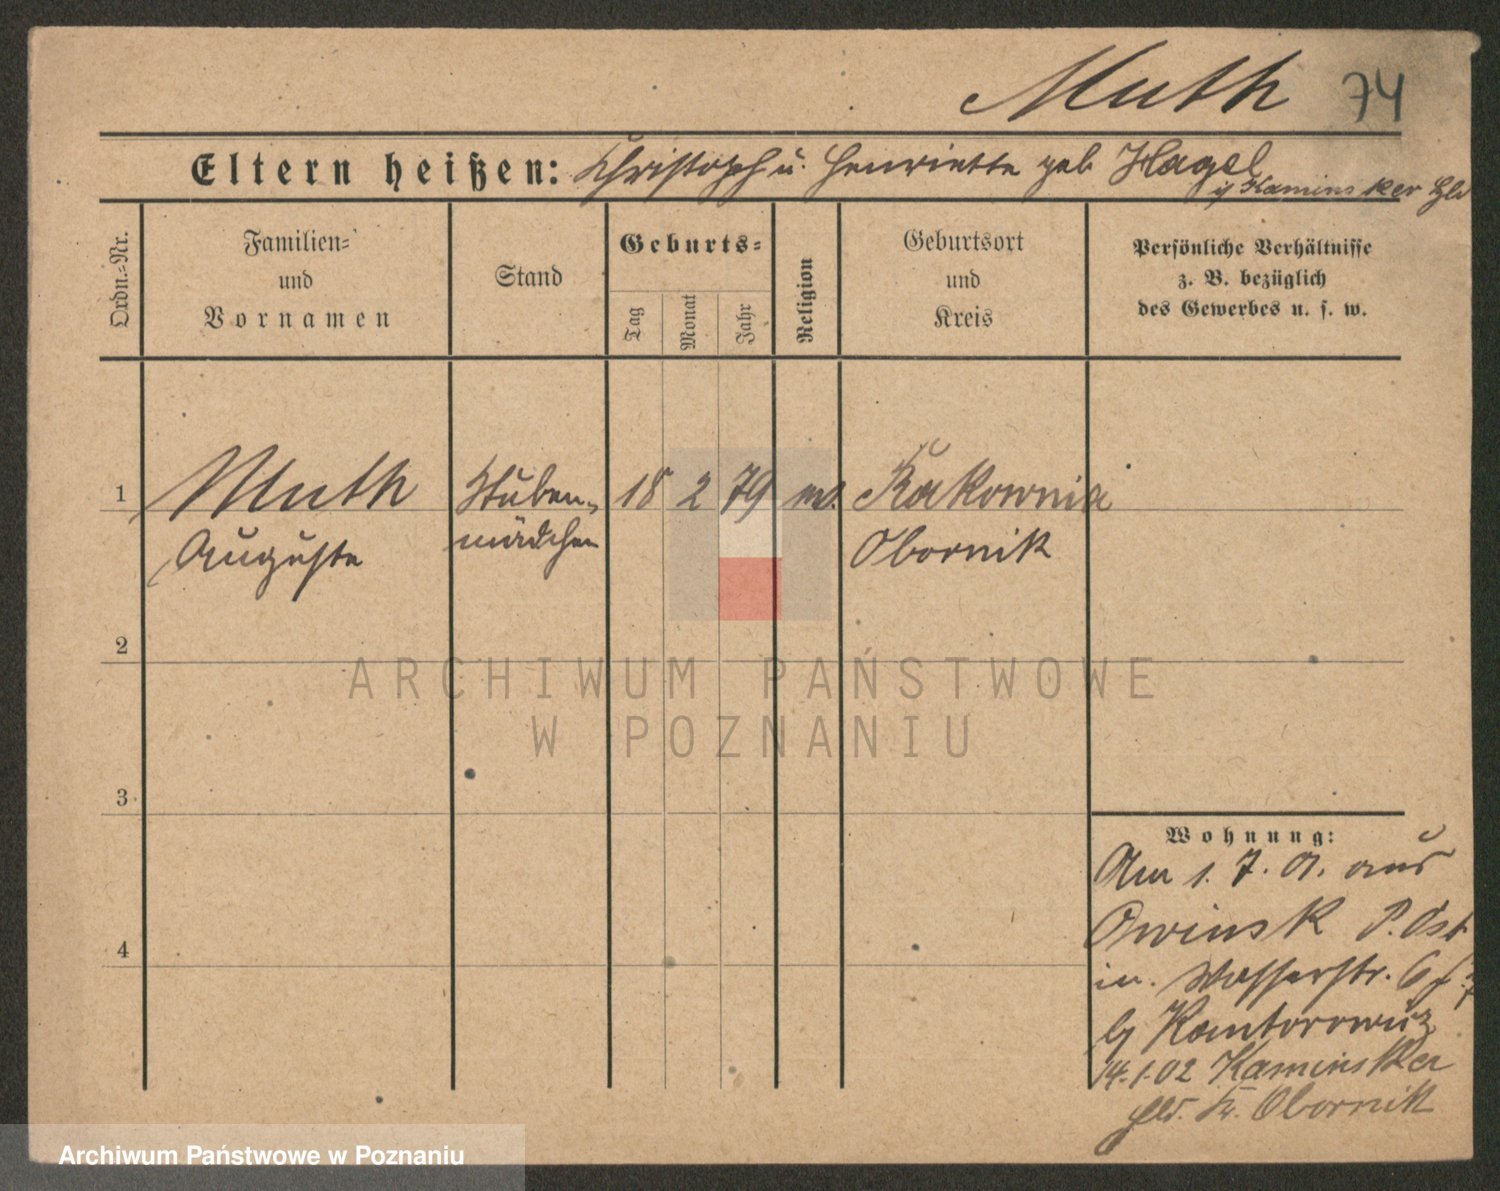 Muth 74
Eltern heißen: Christoph u. Henriette geb Hagel
i/ Kaminsker Hld
Ordn.-Nr.
Familien-
und
Vornamen
Stand
Geburts-
Tag
Monat
Jahr
Religion
Geburtsort
und
Kreis
Persönliche Verhältnisse
z. B. bezüglich
des Gewerbes u. s. w.
1 Muth Stuben- 18 2 79 ev. Rakownia
Auguste mädchen Obornik
2
3
4
ARCHIWUM PAŃSTWOWE
W POZNANIU
Wohnung:
Am 1. 7. 01. aus
Owinsk P. Ost
in. Wasserstr.
b/ Kantorowicz
14.1.02 Kaminsker
Hld. Kr. Obornik
Archiwum Państwowe w Poznaniu